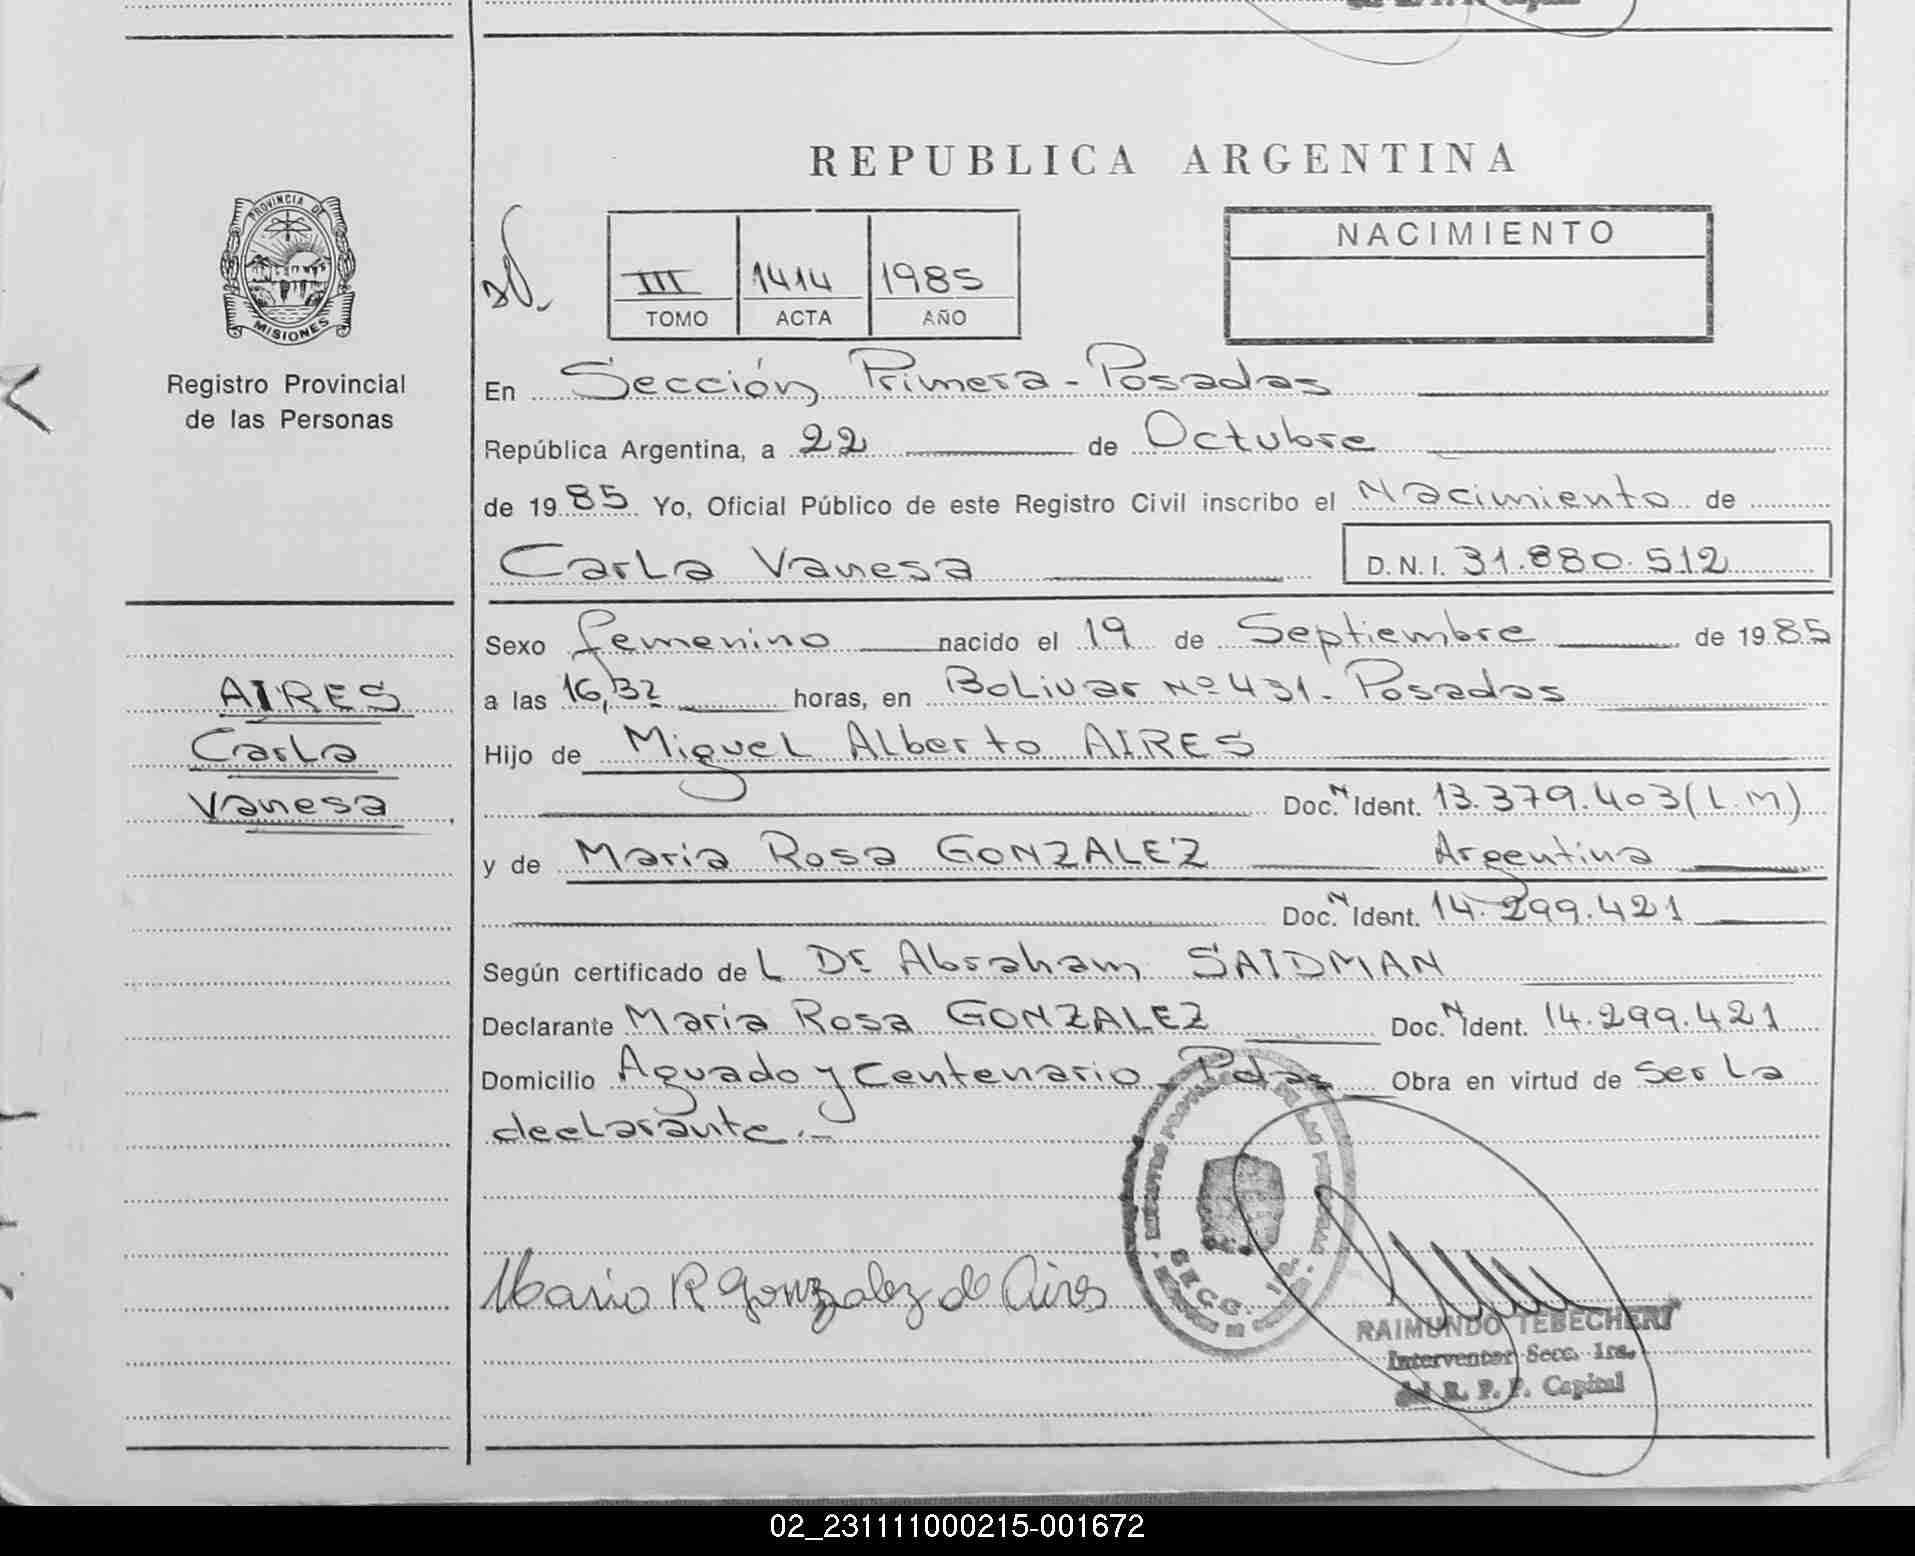 REPUBLICA ARGENTINA
PROVINCIA DE
MISIONES
Registro Provincial
de las Personas
III 1414 1985
TOMO ACTA AÑO
NACIMIENTO
En Sección Primera - Posadas
República Argentina, a 22 de Octubre
de 1985 Yo, Oficial Público de este Registro Civil inscribo el Nacimiento de
Carla Vanesa D.N.I. 31.880.512
Sexo femenino nacido el 19 de Septiembre de 1985
a las 16,32 horas, en Bolivar Nº 431 - Posadas
Hijo de Miguel Alberto AIRES
Doc. N Ident. 13.379.403 (L.M)
y de Maria Rosa GONZALEZ Argentina
Doc. N Ident. 14.299.421
Según certificado de L Dr Abraham SAIDMAN
Declarante Maria Rosa GONZALEZ Doc. N Ident. 14.299.421
Domicilio Aguado y Centenario - Pdas Obra en virtud de ser la
declarante.-
AIRES
Carla
Vanesa
Maria R Gonzalez de Aires
SECC. 1ª
RAIMUNDO TEBECHERI
Interventor Secc. 1ra.
del R. P. P. Capital
02_231111000215-001672